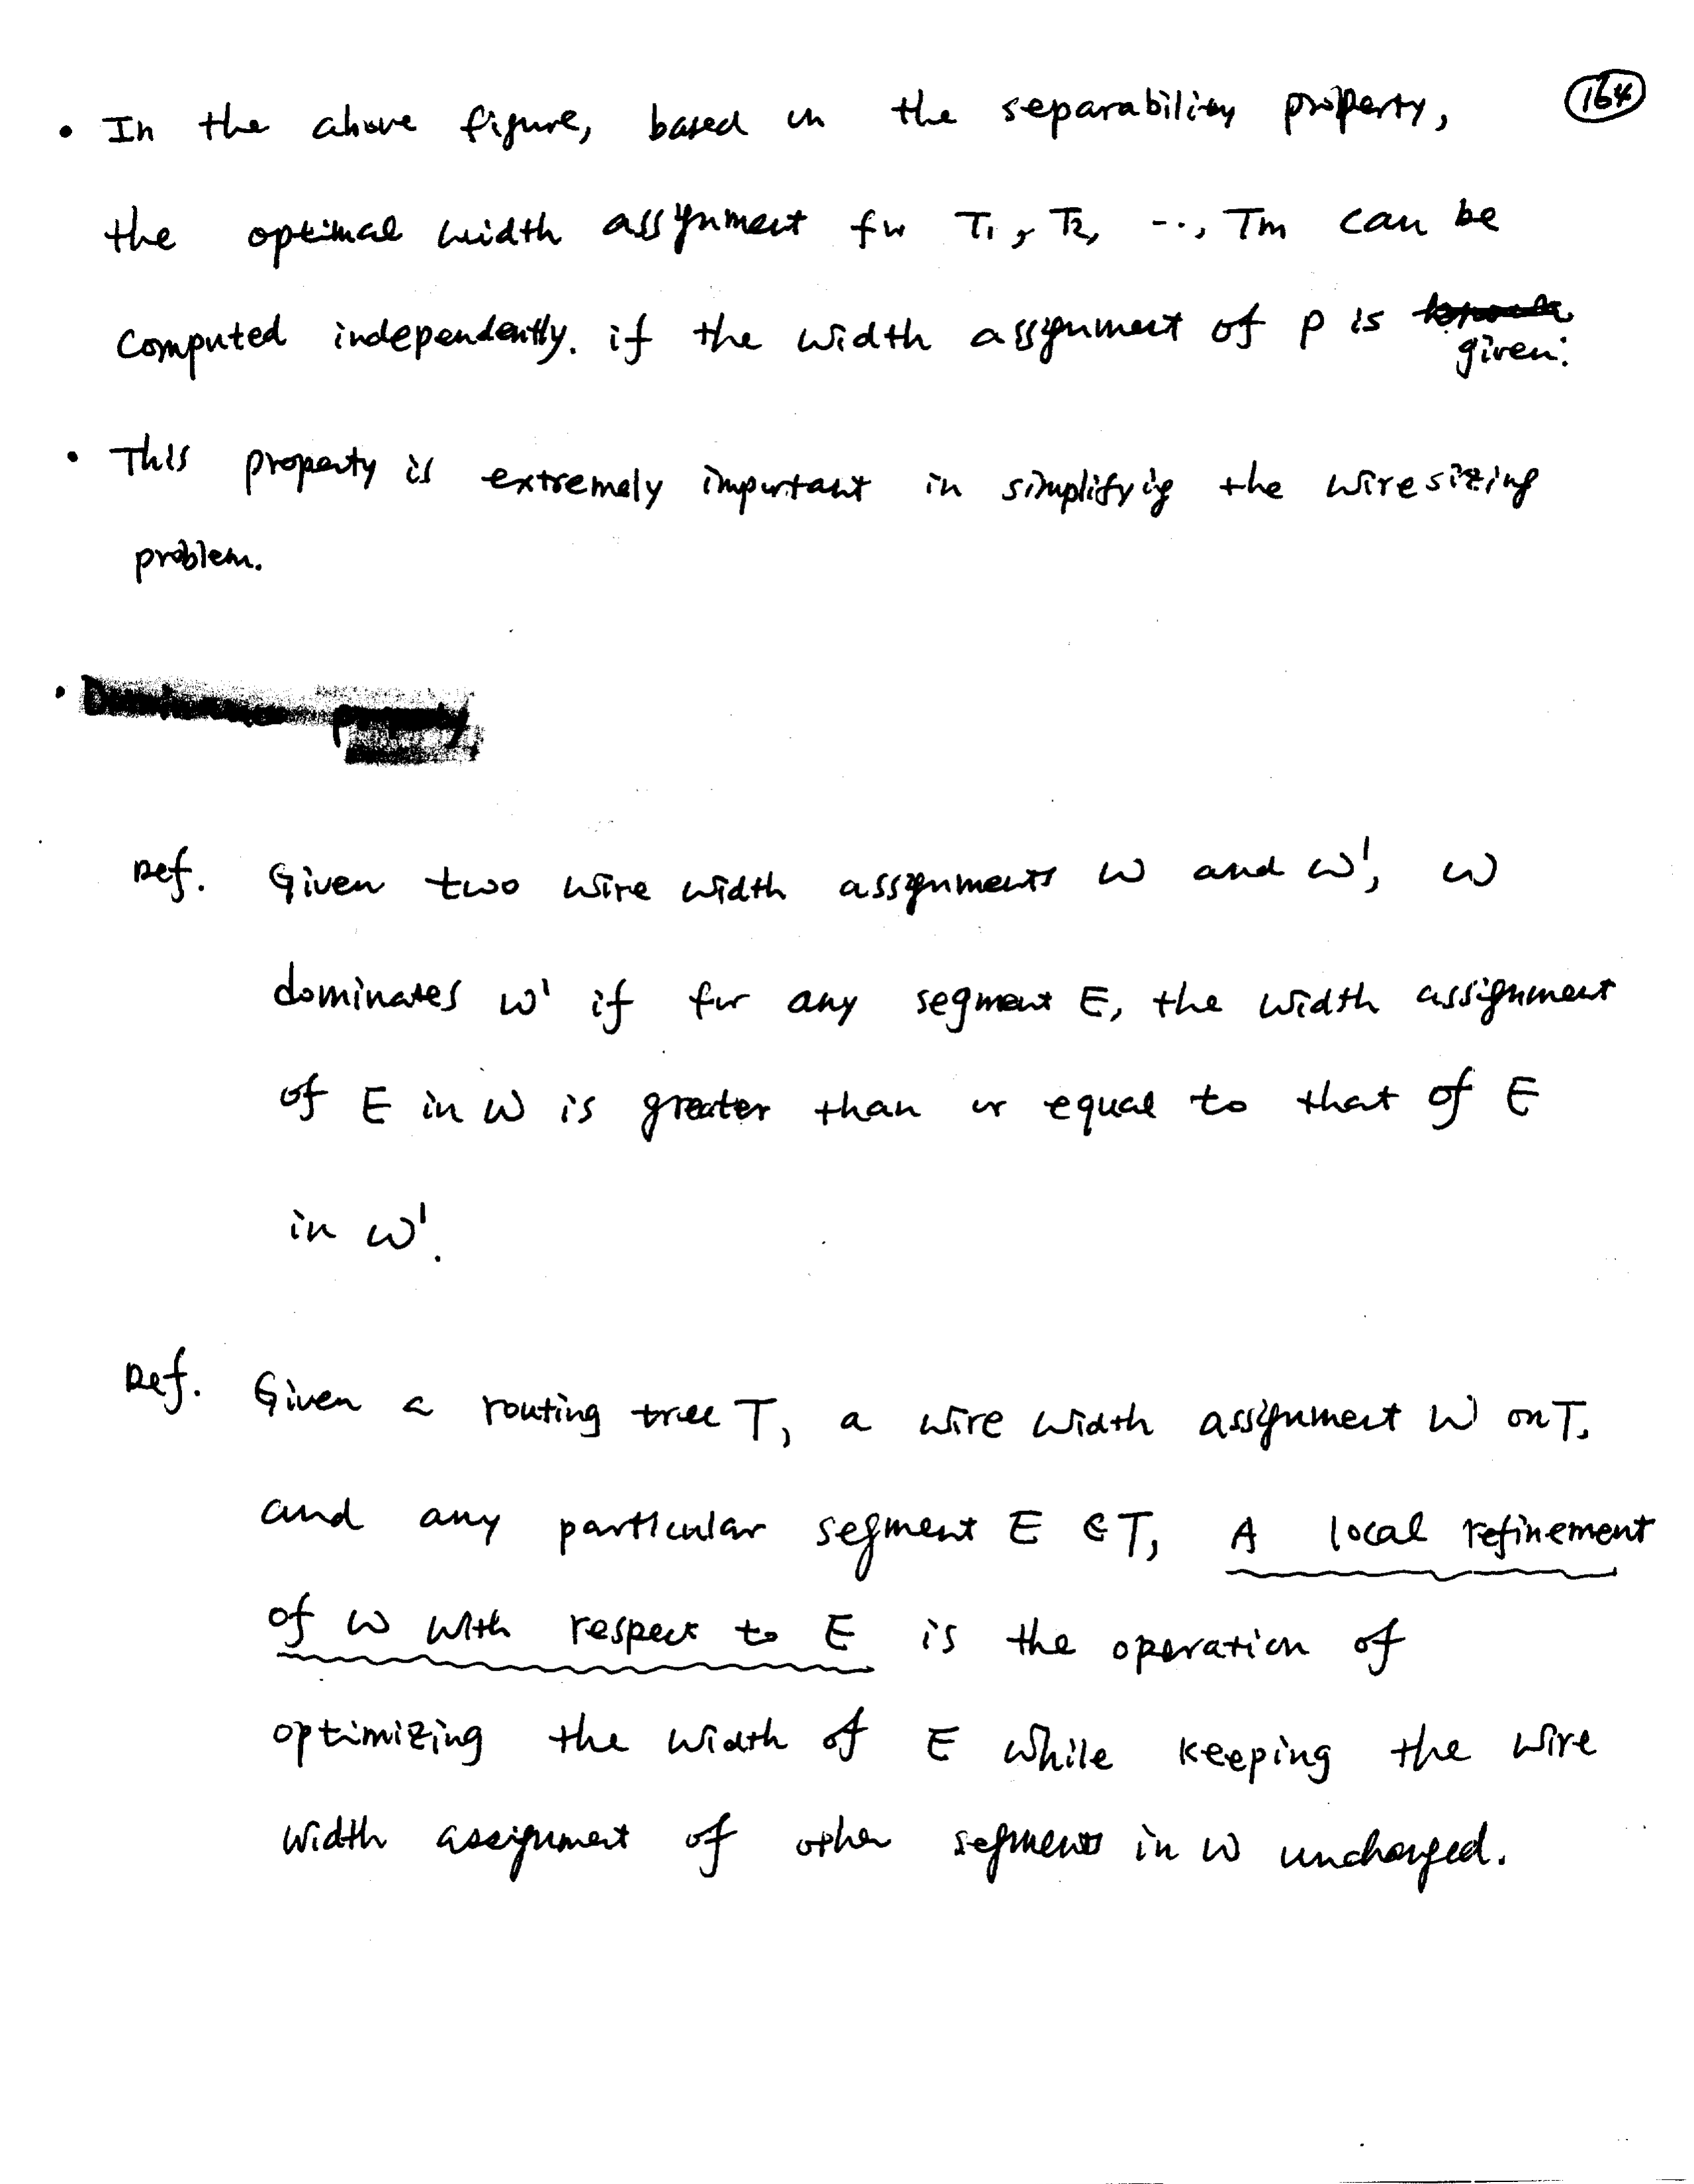 164
• In the above figure, based on the separability property,
the optimal width assignment for T1, T2, ..., Tm can be
computed independently. if the width assignment of P is
given.
• This property is extremely important in simplifying the wiresizing
problem.
• property
Def. Given two wire width assignments W and W', W
dominates W' if for any segment E, the width assignment
of E in W is greater than or equal to that of E
in W'.
Def. Given a routing tree T, a wire width assignment W on T,
and any particular segment E ∈ T, A local refinement
of W with respect to E is the operation of
optimizing the width of E while keeping the wire
width assignment of other segments in W unchanged.